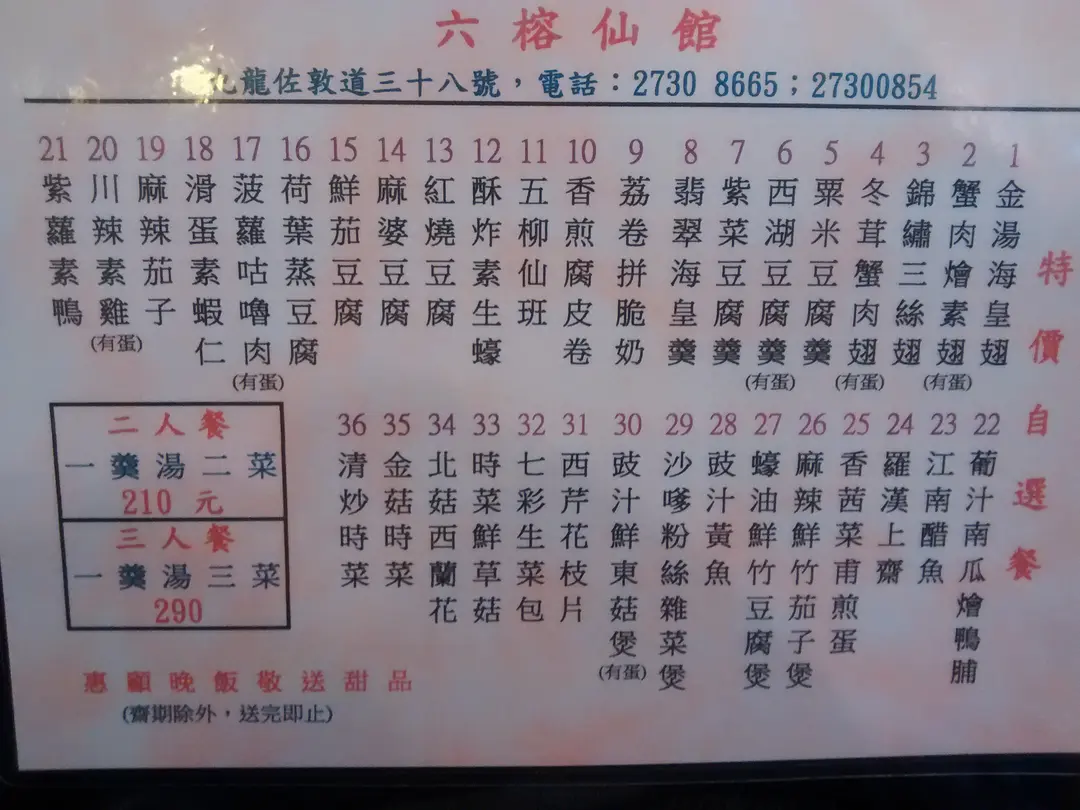 六榕仙館
九龍佐敦道三十八號，電話：2730 8665；27300854
特價自選餐
1 金湯海皇翅
2 蟹肉燴素翅(有蛋)
3 錦繡三絲翅
4 冬茸蟹肉翅(有蛋)
5 粟米豆腐羹
6 西湖豆腐羹(有蛋)
7 紫菜豆腐羹
8 翡翠海皇羹
9 荔卷拼脆奶
10 香煎腐皮卷
11 五柳仙班
12 酥炸素生蠔
13 紅燒豆腐
14 麻婆豆腐
15 鮮茄豆腐
16 荷葉蒸豆腐
17 菠蘿咕嚕肉(有蛋)
18 滑蛋素蝦仁
19 麻辣茄子
20 川辣素雞(有蛋)
21 紫蘿素鴨
22 葡汁南瓜燴鴨脯
23 江南醋魚
24 羅漢上齋
25 香茜菜甫煎蛋
26 麻辣鮮竹茄子煲
27 蠔油鮮竹豆腐煲
28 豉汁黃魚
29 沙嗲粉絲雜菜煲
30 豉汁鮮東菇煲(有蛋)
31 西芹花枝片
32 七彩生菜包
33 時菜鮮草菇
34 北菇西蘭花
35 金菇時菜
36 清炒時菜
二人餐
一羹湯二菜
210 元
三人餐
一羹湯三菜
290
惠顧晚飯敬送甜品
(齋期除外，送完即止)